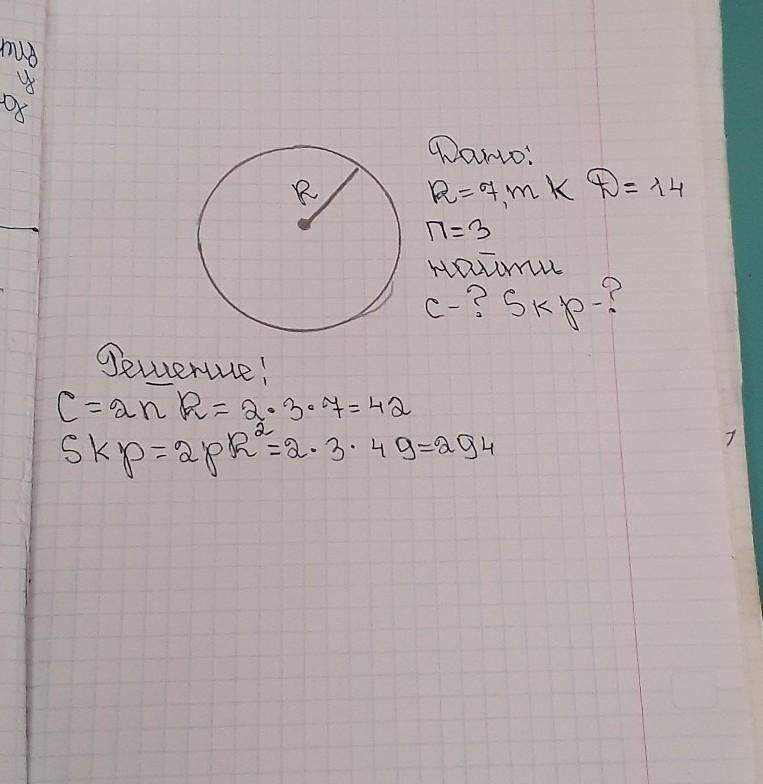 R
Дано:
R=7, т к D=14
П=3
найти
С-? Sкр-?
Решение:
С=2пR=2·3·7=42
Sкр=2pR²=2·3·49=294